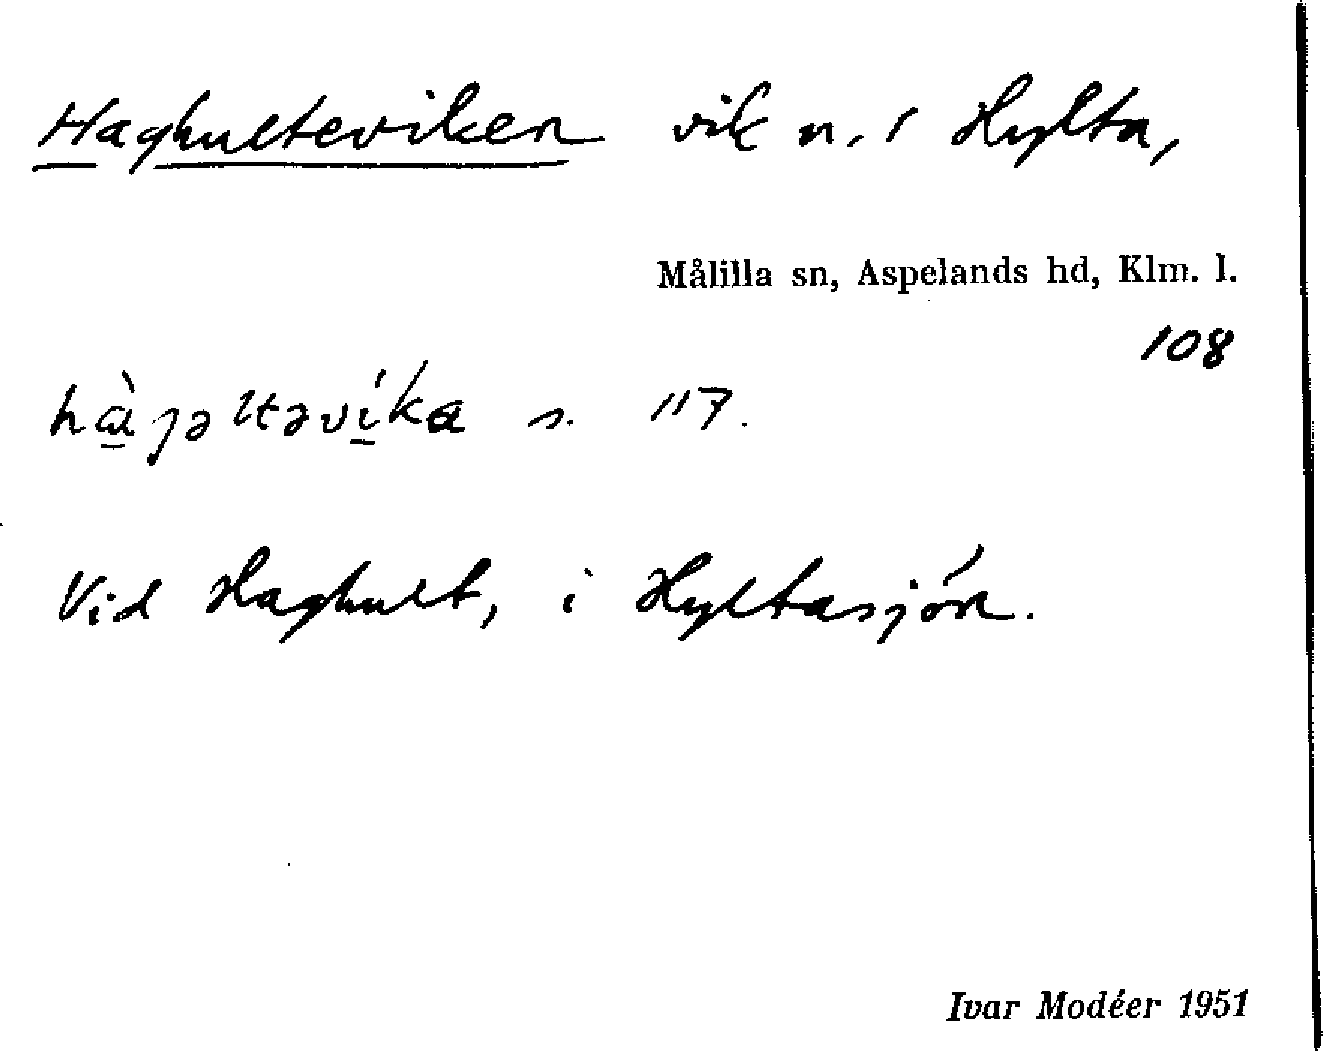 Haghulteviken vik n. i Hylta,
Målilla sn, Aspelands hd, Klm. l.
108
hàgəltəvíka s. 117.
Vid Haghult, i Hyltasjön.
Ivar Modéer 1951